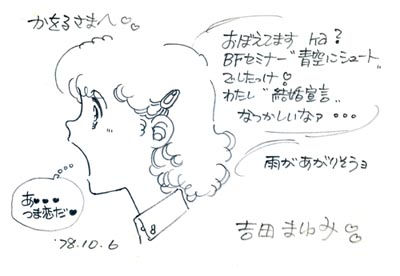 かをるさまへ♡♡
おぼえてます ka?
BFセミナー"青空にシュート"
でしたっけ!
わたし"結婚宣言"
なつかしいなァ・・・
雨があがりそうヨ
あ♥♥♥
つま恋だ♥
'78.10.6
吉田まゆみ♡♡